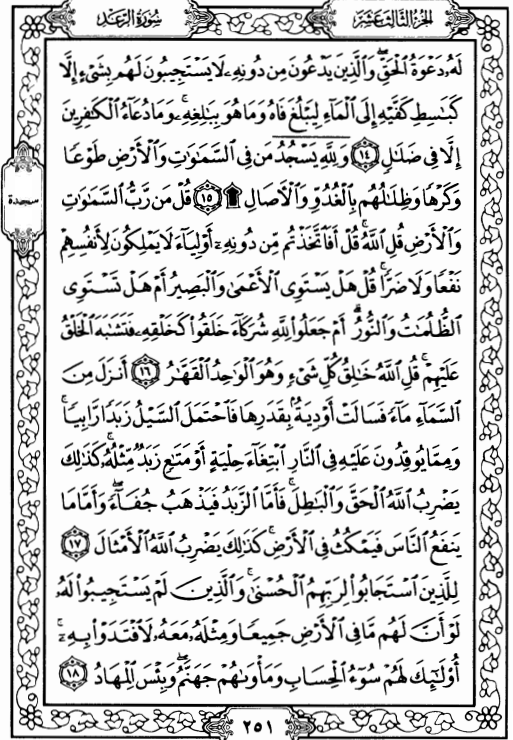 الجزء الثالث عشر
سورة الرعد
لَهُۥ دَعْوَةُ ٱلْحَقِّ ۖ وَٱلَّذِينَ يَدْعُونَ مِن دُونِهِۦ لَا يَسْتَجِيبُونَ لَهُم بِشَىْءٍ إِلَّا
كَبَـٰسِطِ كَفَّيْهِ إِلَى ٱلْمَآءِ لِيَبْلُغَ فَاهُ وَمَا هُوَ بِبَـٰلِغِهِۦ ۚ وَمَا دُعَآءُ ٱلْكَـٰفِرِينَ
إِلَّا فِى ضَلَـٰلٍ ١٤ وَلِلَّهِ يَسْجُدُ مَن فِى ٱلسَّمَـٰوَٰتِ وَٱلْأَرْضِ طَوْعًا
سجدة
وَكَرْهًا وَظِلَـٰلُهُم بِٱلْغُدُوِّ وَٱلْـَٔاصَالِ ۩ ١٥ قُلْ مَن رَّبُّ ٱلسَّمَـٰوَٰتِ
وَٱلْأَرْضِ قُلِ ٱللَّهُ ۚ قُلْ أَفَٱتَّخَذْتُم مِّن دُونِهِۦٓ أَوْلِيَآءَ لَا يَمْلِكُونَ لِأَنفُسِهِمْ
نَفْعًا وَلَا ضَرًّا ۚ قُلْ هَلْ يَسْتَوِى ٱلْأَعْمَىٰ وَٱلْبَصِيرُ أَمْ هَلْ تَسْتَوِى
ٱلظُّلُمَـٰتُ وَٱلنُّورُ ۗ أَمْ جَعَلُوا۟ لِلَّهِ شُرَكَآءَ خَلَقُوا۟ كَخَلْقِهِۦ فَتَشَـٰبَهَ ٱلْخَلْقُ
عَلَيْهِمْ ۚ قُلِ ٱللَّهُ خَـٰلِقُ كُلِّ شَىْءٍ وَهُوَ ٱلْوَٰحِدُ ٱلْقَهَّـٰرُ ١٦ أَنزَلَ مِنَ
ٱلسَّمَآءِ مَآءً فَسَالَتْ أَوْدِيَةٌۢ بِقَدَرِهَا فَٱحْتَمَلَ ٱلسَّيْلُ زَبَدًا رَّابِيًا ۚ
وَمِمَّا يُوقِدُونَ عَلَيْهِ فِى ٱلنَّارِ ٱبْتِغَآءَ حِلْيَةٍ أَوْ مَتَـٰعٍ زَبَدٌ مِّثْلُهُۥ ۚ كَذَٰلِكَ
يَضْرِبُ ٱللَّهُ ٱلْحَقَّ وَٱلْبَـٰطِلَ ۚ فَأَمَّا ٱلزَّبَدُ فَيَذْهَبُ جُفَآءً ۖ وَأَمَّا مَا
يَنفَعُ ٱلنَّاسَ فَيَمْكُثُ فِى ٱلْأَرْضِ ۚ كَذَٰلِكَ يَضْرِبُ ٱللَّهُ ٱلْأَمْثَالَ ١٧
لِلَّذِينَ ٱسْتَجَابُوا۟ لِرَبِّهِمُ ٱلْحُسْنَىٰ ۚ وَٱلَّذِينَ لَمْ يَسْتَجِيبُوا۟ لَهُۥ
لَوْ أَنَّ لَهُم مَّا فِى ٱلْأَرْضِ جَمِيعًا وَمِثْلَهُۥ مَعَهُۥ لَٱفْتَدَوْا۟ بِهِۦٓ ۚ
أُو۟لَـٰٓئِكَ لَهُمْ سُوٓءُ ٱلْحِسَابِ وَمَأْوَىٰهُمْ جَهَنَّمُ ۖ وَبِئْسَ ٱلْمِهَادُ ١٨
٢٥١